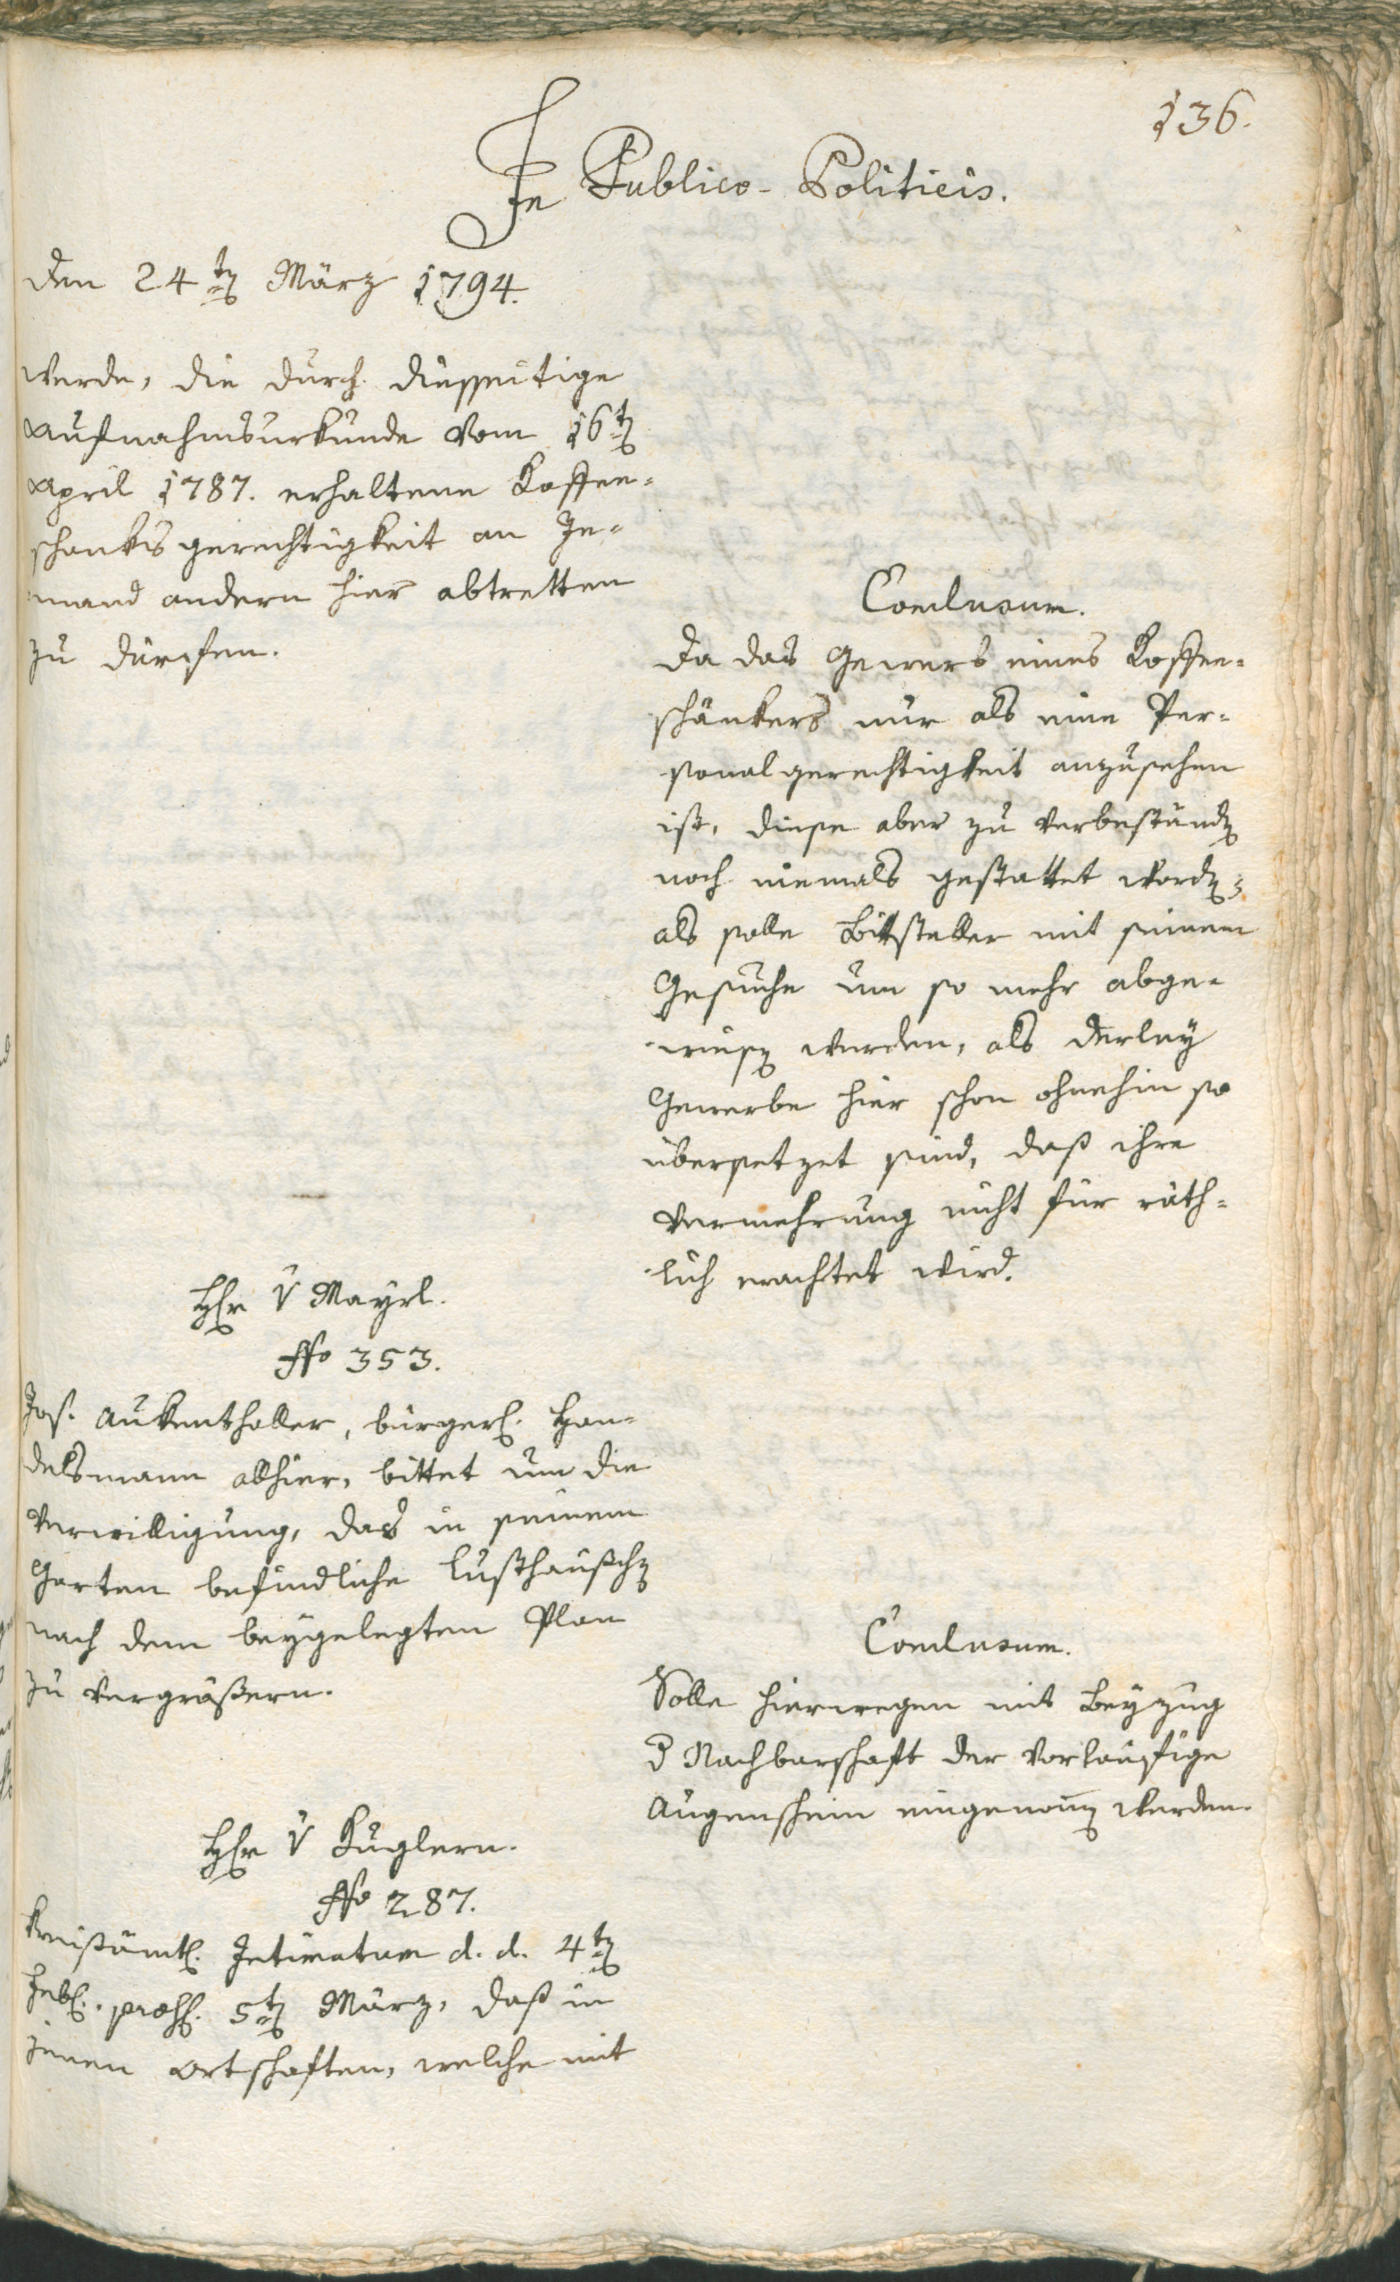 136.
In Publico-Politicis.
den 24t̲e̲n̲ März 1794.
werde, die durch diesseitige
Aufnahmsurkunde vom 16ten
April 1787. erhaltene Koffee-
schanksgerechtigkeit an Je-
mand andern hier abtretten
zu därfen.
Conclusum.
Da das Gewerb eines Koffee-
schänkers nur als eine Per-
sonalgerechtigkeit anzusehen
ist, diese aber zu verbeständen
noch niemals gestattet worden;
als solle Bittsteller mit seinem
Gesuche um so mehr abge-
wiesen werden, als derley
Gewerbe hier schon ohnehin so
übersetzet sind, daß ihre
Vermehrung nicht für räth-
lich erachtet wird.
Hr v Mayrl.
No 353.
Jos. Aukenthaller, bürgerl. Han-
delsmann allhier, bittet um die
Verwilligung, das in seinem
Garten befindliche Lusthäuschen
nach dem beygelegten Plan
zu vergrößern.
Conclusum.
Solle hierwegen mit Beyzug
d Nachbarschaft der vorläufige
Augenschein eingenomen werden.
Hr v Kuglern.
No 287.
Kreisämtl. Intimatum d. d. 4ten
Febr. präs. 5ten März, daß in
jenen Ortschaften, welche mit